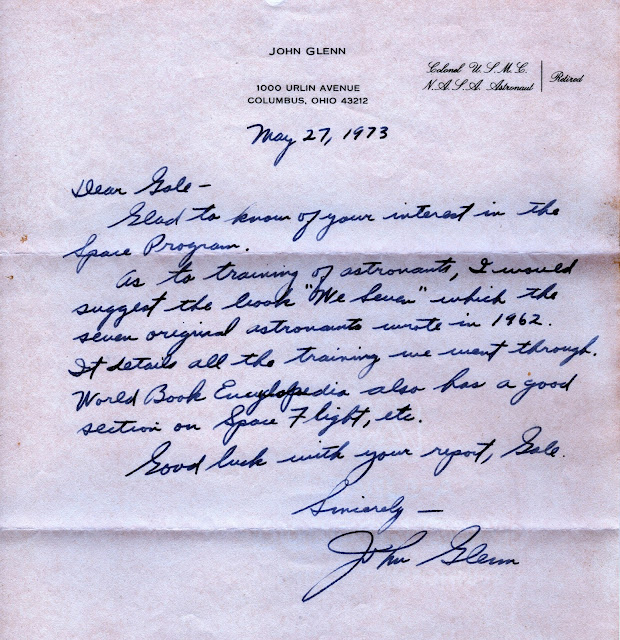 JOHN GLENN
1000 URLIN AVENUE
COLUMBUS, OHIO 43212
Colonel U.S.M.C.
N.A.S.A. Astronaut
Retired
May 27, 1973
Dear Gale -
Glad to know of your interest in the
Space Program.
As to training of astronauts, I would
suggest the book "We Seven" which the
seven original astronauts wrote in 1962.
It details all the training we went through.
World Book Encyclopedia also has a good
section on Space Flight, etc.
Good luck with your report, Gale.
Sincerely -
John Glenn